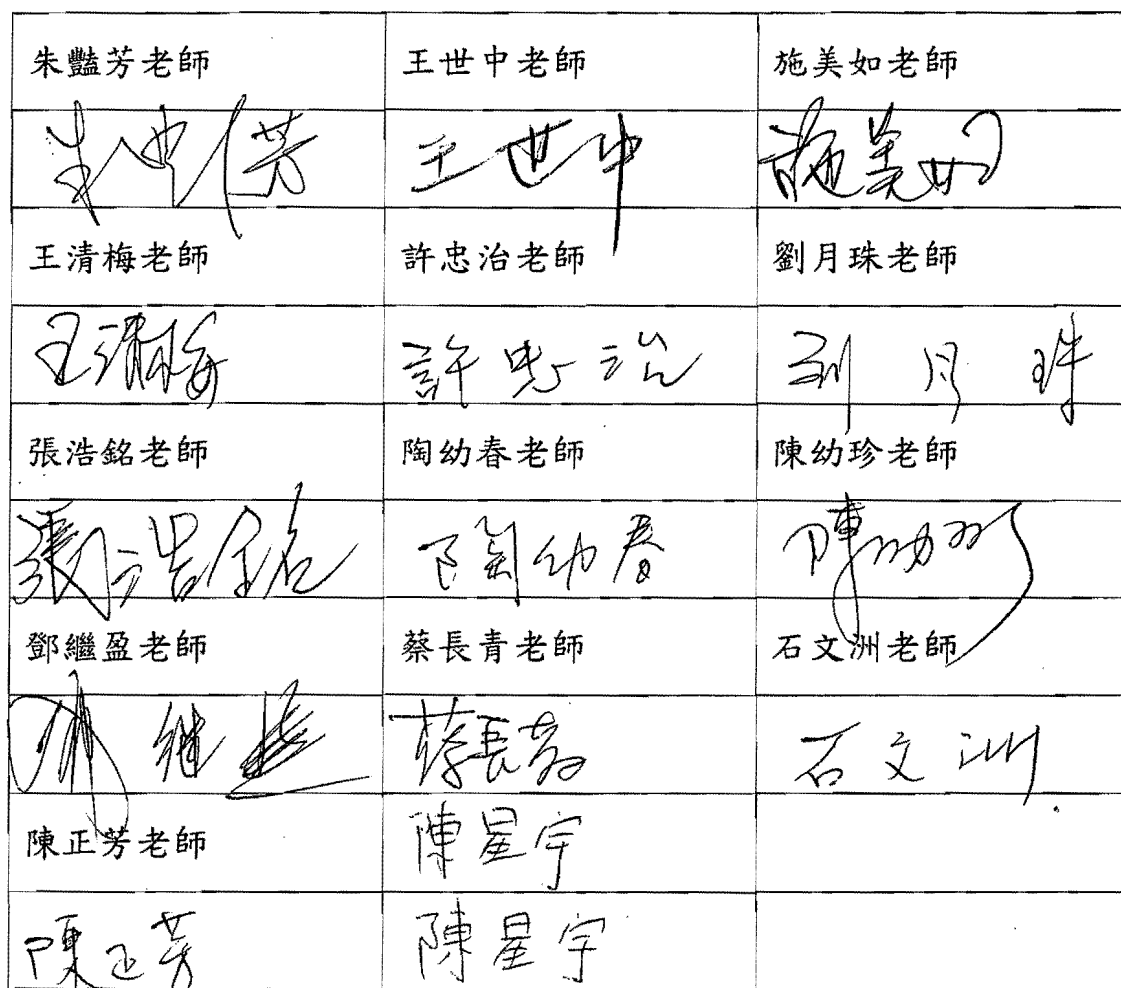 朱豔芳老師 王世中老師 施美如老師
王世中 施美如
王清梅老師 許忠治老師 劉月珠老師
王清梅 許忠治 刘月珠
張浩銘老師 陶幼春老師 陳幼珍老師
張浩銘 陶幼春 陳幼珍
鄧繼盈老師 蔡長青老師 石文洲老師
石文洲
陳正芳老師 陳星宇
陳正芳 陳星宇